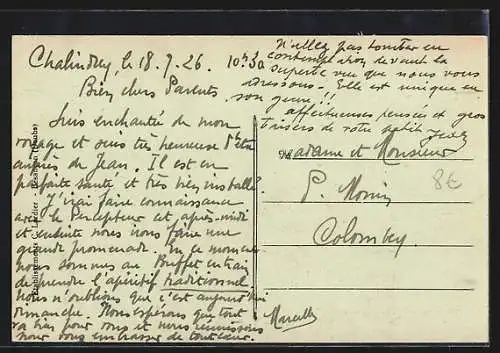 Chalindrey, le 18.7.26. 10h30
Bien chers Parents
Suis enchantée de mon
voyage et suis très heureuse d'être
auprès de Jean. Il est en
parfaite santé et très bien installé.
J'irai faire connaissance
avec le Percepteur cet après-midi
et ensuite nous nous faire une
grande promenade. En ce moment
nous sommes au Buffet en train
de prendre l'apéritif traditionnel
nous n'oublions que c'est aujourd'hui
dimanche. Nous espérons que tout
va bien pour vous et nous réunissons
pour vous embrasser de tout cœur.
Marcelle
N'allez pas tomber en
contemplation devant la
superbe vue que nous vous
adressons. Elle est unique en
son genre!!
affectueuses pensées et gros
baisers de votre petit Jean
Madame et Monsieur
P. Morin
Colombey
8€
Etablissements C. Lardier - Besançon (Doubs)